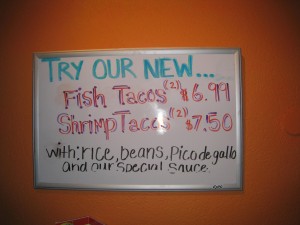 TRY OUR NEW...
Fish Tacos (2) $6.99
Shrimp Tacos (2) $7.50
with: rice, beans, Pico de gallo
and our special sauce.